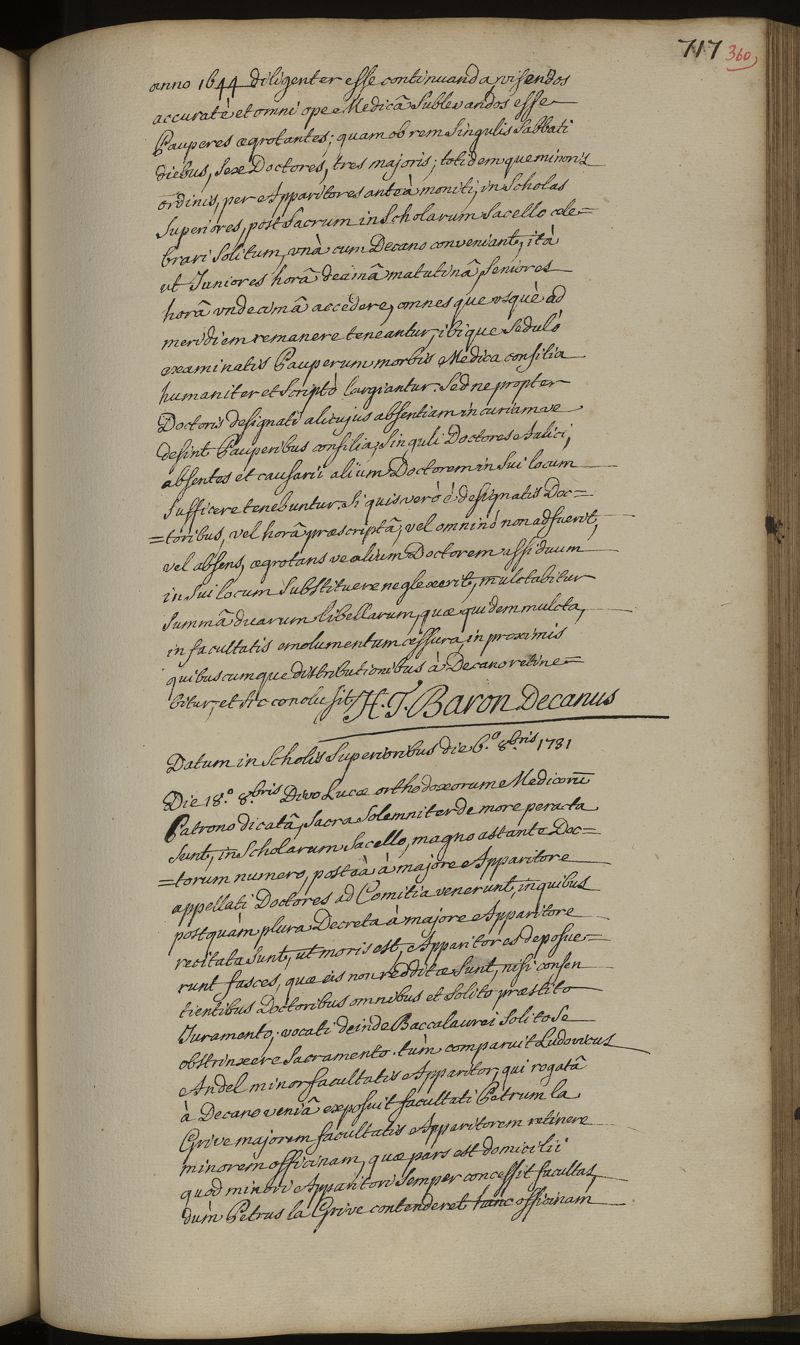 717 360
anno 1644 diligenter esse continuanda, visendos
accuratè et omni ope Medicâ Sublevandos esse
Pauperes ægrotantes; quam ob rem Singulis Sabbati
diebus, sex Doctores, tres majoris, totidemque minoris
ordinis, per Apparitores anteà moniti, in Scholas
Superiores, post Sacrum in Scholarum Sacello cele=
brari Solitum, vnà cum Decano conveniant, ità
ut Juniores horâ decimâ matutinâ, Seniores
horâ vndecimâ accedere, omnesque vsquè ad
meridiem remanere teneantur, ibique Seduló
examinatis Pauperum morbis Medica consilia
humaniter et Scriptò largiantur. Sed ne propter
Doctoris designati alicujus absentiam incuriamve
desint Pauperibus consilia, Singuli Doctores Italici,
absentes et causarii alium Doctorem in Sui locum
Sufficere tenebuntur. Si quis verò é designatis Doc=
=toribus, vel horâ præscriptâ, vel omninó non adfuerit,
vel absens, ægrotansve alium Doctorem assiduum
in Sui locum Substituere neglexerit, mulctabitur
Summâ duarum libellarum, quæ quidem mulcta,
in facultatis emolumentum cessura, in proximis
quibuscumque distributionibus à Decano retine=
bitur, et sic conclusit H. T. Baron Decanus
Datum in Scholis Superioribus die 6.º 8.bris 1731
Die 18.º 8.bris Divo Lucæ orthodoxorum Medicorū
Patrono dicatâ, Sacra Solemniter de more peracta
Sunt, in Scholarum Sacello, magno astante Doc=
=torum numero, posteà à majore Apparitore
appellati Doctores ad Comitia venerunt, in quibus
postquàm plura Decreta à majore Apparitore
recitata Sunt, ut moris est, Apparitores deposue=
runt fasces, quæ eis non redditæ Sunt, nisi consen
tientibus Doctoribus omnibus et Solito præstito
Juramento; vocati deinde Baccalaurei Solito Se
obstrinxere Sacramento. tùm comparuit Ludovicus
Andel minor facultatis Apparitor, qui rogatâ
à Decano veniâ exposuit facultati Petrum la
Grive majorem facultatis Apparitorem retinere
minorem officinam, quæ pars est domicilii
quod minori Apparitori Semper concessit facultas,
dùm Petrus la Grive contenderet hanc officinam